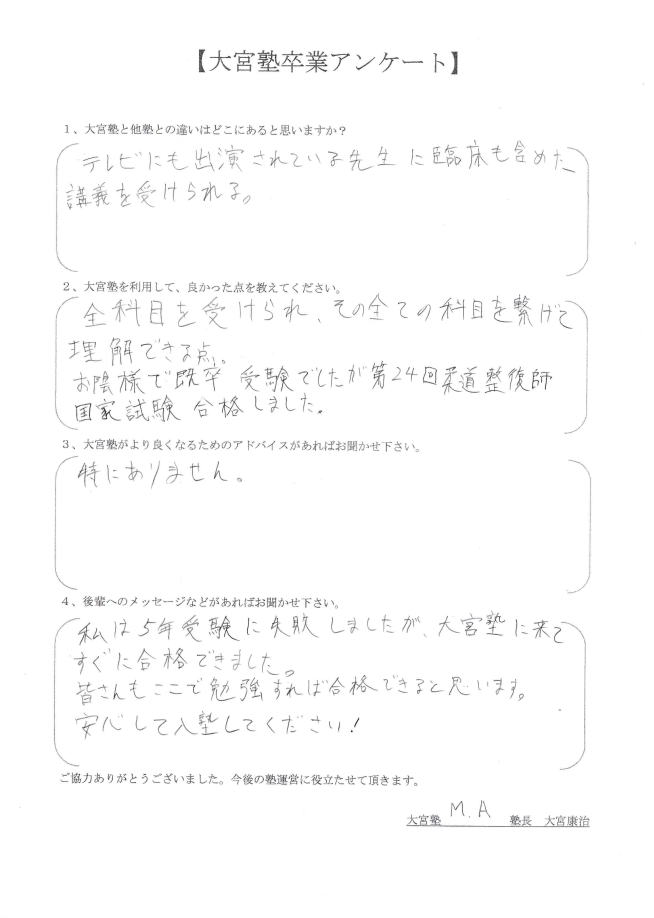 【大宮塾卒業アンケート】
１、大宮塾と他塾との違いはどこにあると思いますか？
テレビにも出演されている先生に臨床も含めた
講義を受けられる。
２、大宮塾を利用して、良かった点を教えてください。
全科目を受けられ、その全ての科目を繋げて
理解できる点。
お陰様で既卒 受験でしたが第24回柔道整復師
国家試験 合格しました。
３、大宮塾がより良くなるためのアドバイスがあればお聞かせ下さい。
特にありません。
４、後輩へのメッセージなどがあればお聞かせ下さい。
私は5年受験に失敗しましたが、大宮塾に来て
すぐに合格できました。
皆さんもここで勉強すれば合格できると思います。
安心して入塾してください！
ご協力ありがとうございました。今後の塾運営に役立たせて頂きます。
大宮塾 M.A 塾長 大宮康治